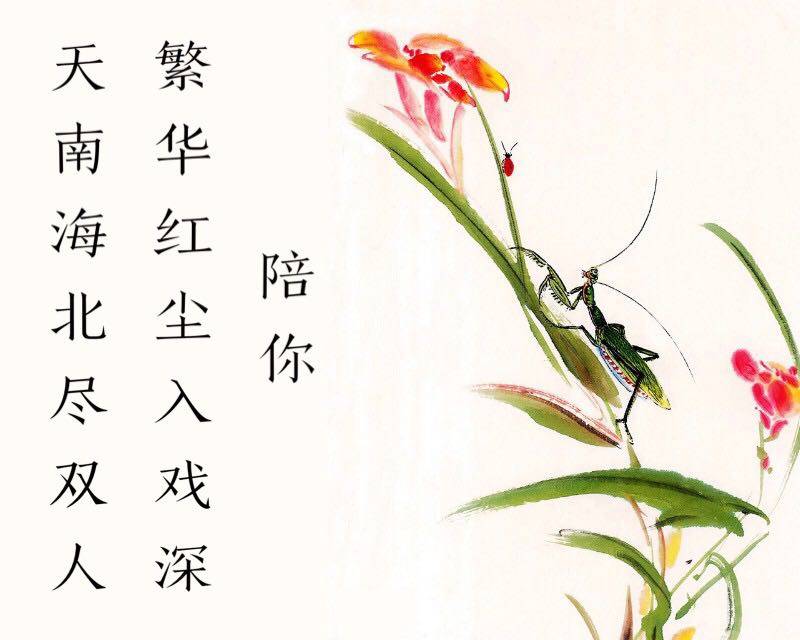 陪你
繁华红尘入戏深
天南海北尽双人